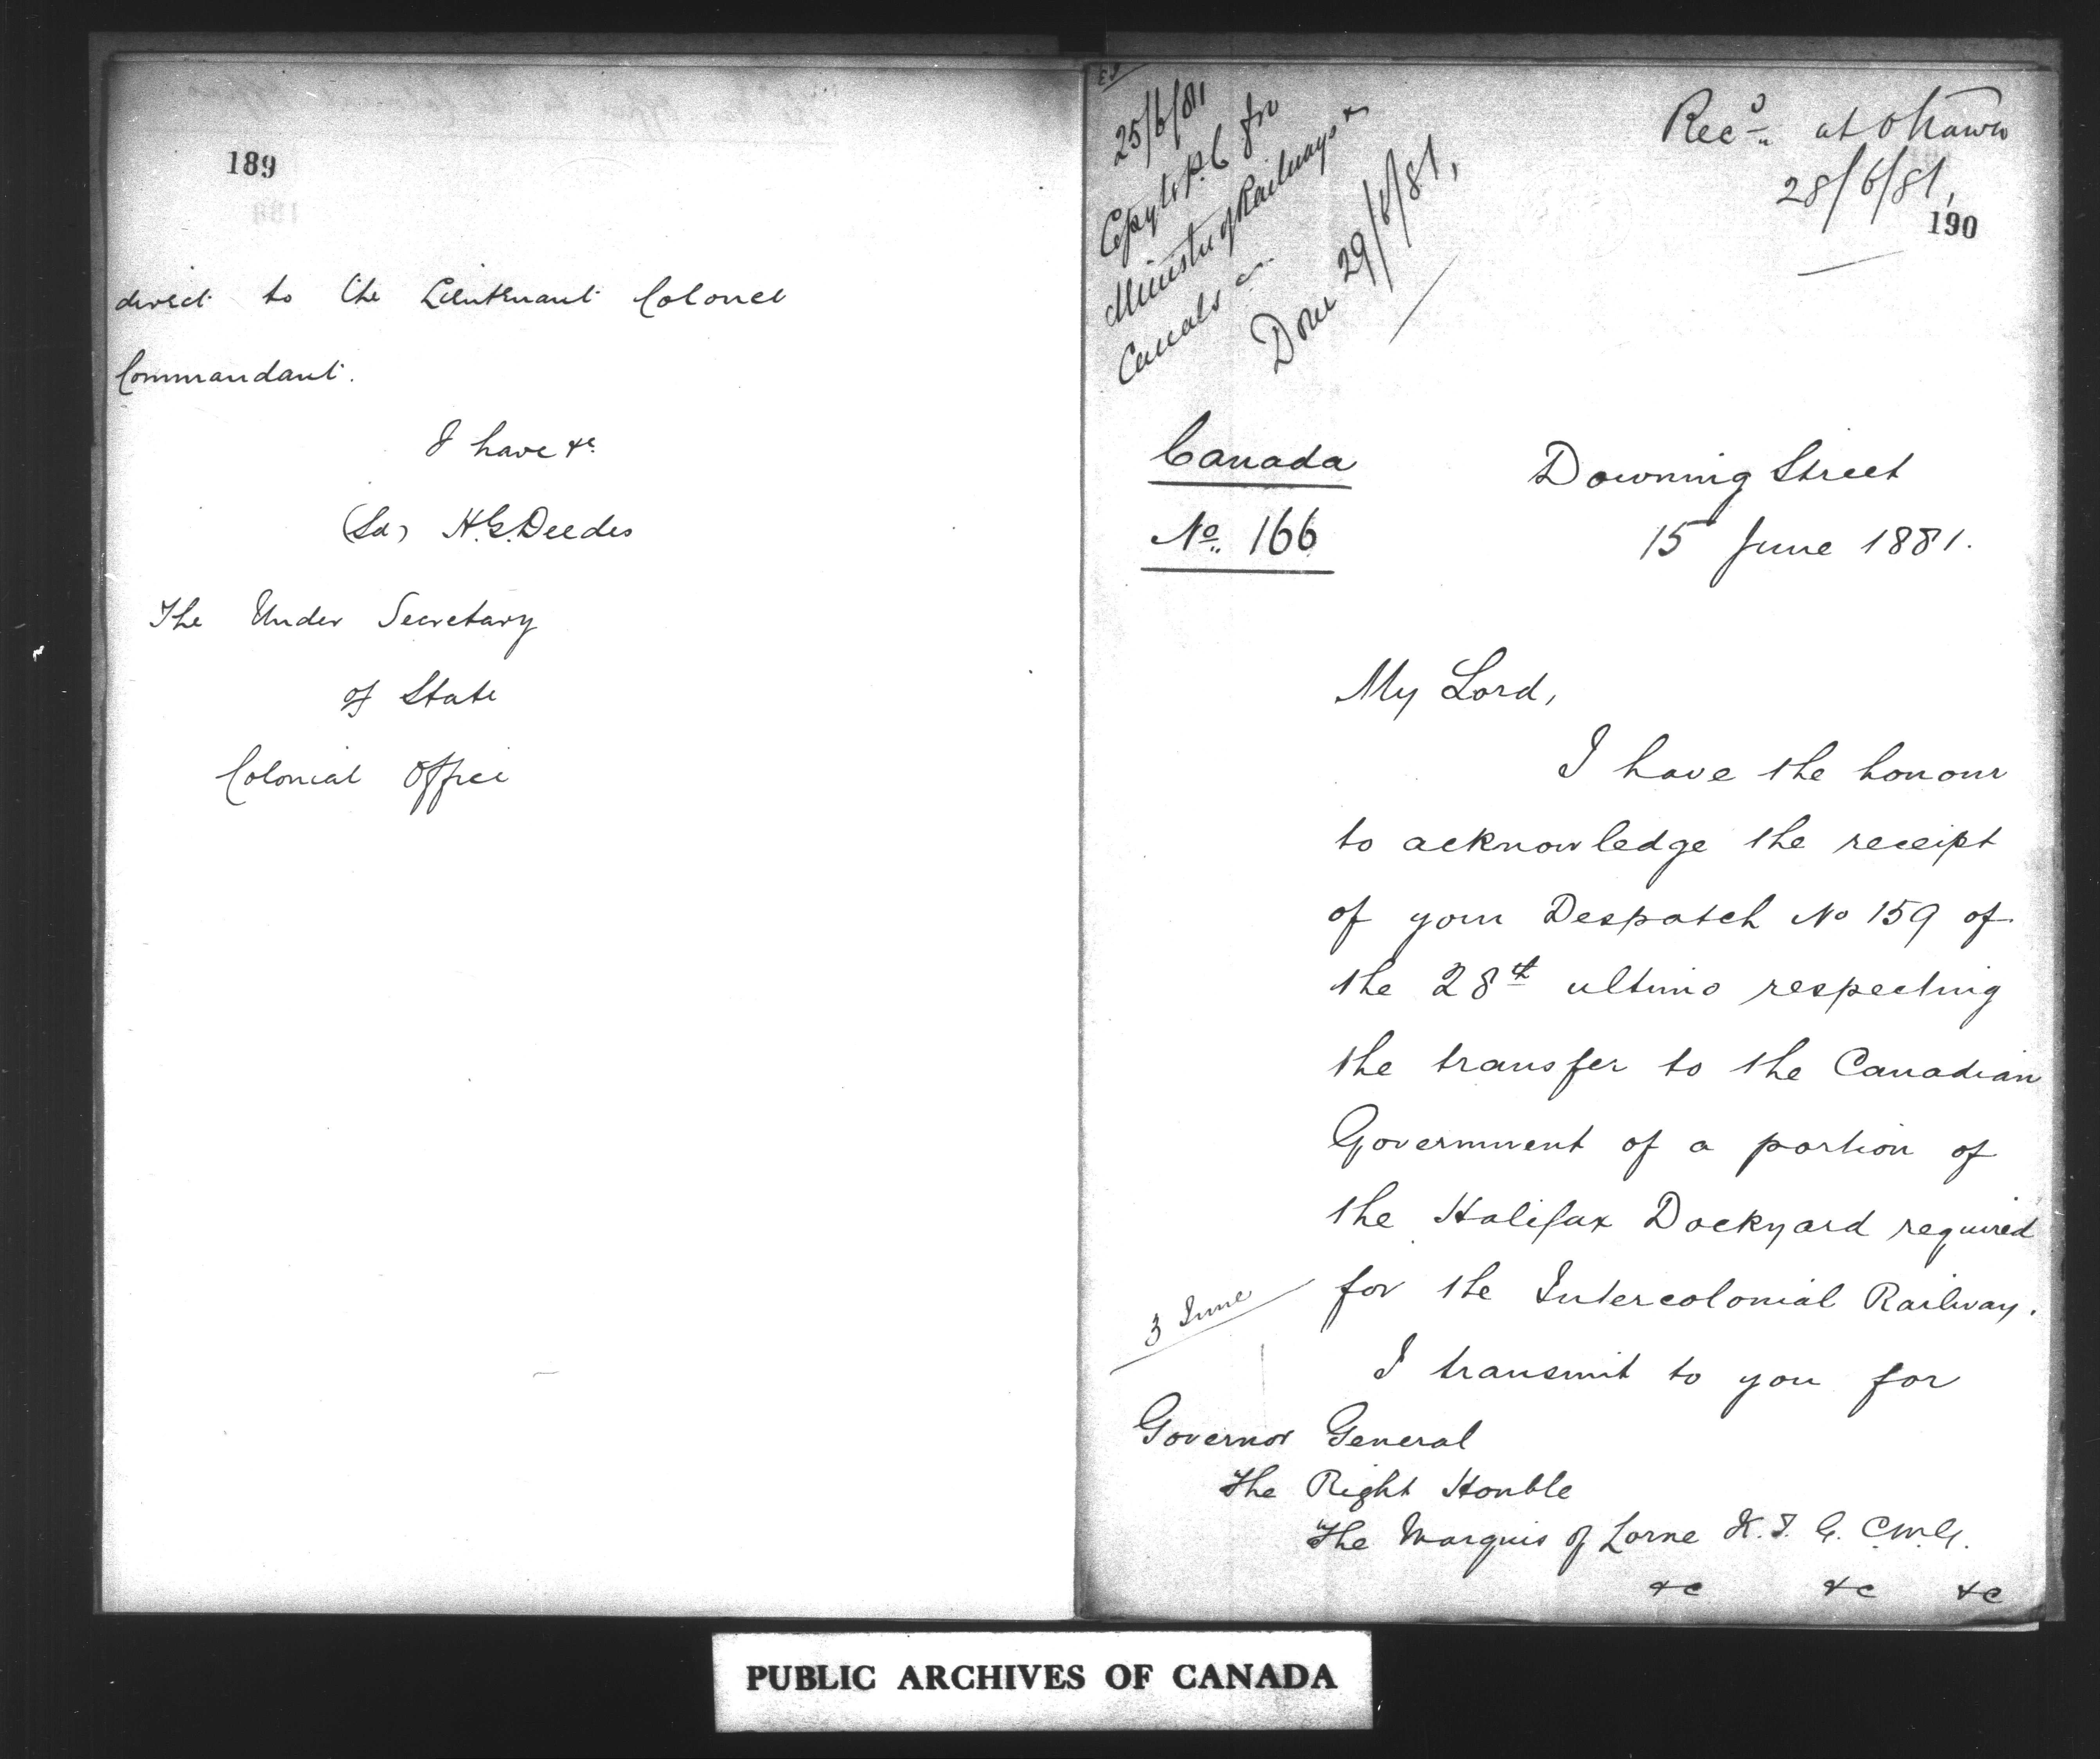 189
direct to the Lieutenant Colonel
Commandant.
I have &c.
(Sd) H.G. Deedes
The Under Secretary
of State
Colonial Office
25/6/81
Copy to P.C for
Minister of Railways &
Canals
Done 29/6/81,
Recd at Ottawa
28/6/81,
190
Canada
No. 166
Downing Street
15 June 1881.
My Lord,
I have the honour
to acknowledge the receipt
of your Despatch No 159 of
the 28th ultimo respecting
the transfer to the Canadian
Government of a portion of
the Halifax Dockyard required
for the Intercolonial Railway.
3 June
I transmit to you for
Governor General
The Right Honble
The Marquis of Lorne K.T. G.C.M.G.
&c &c &c
PUBLIC ARCHIVES OF CANADA